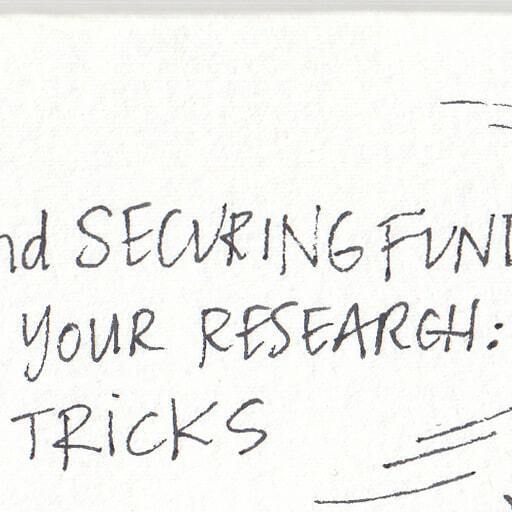 nd SECURING FUND
YOUR RESEARCH:
TRICKS